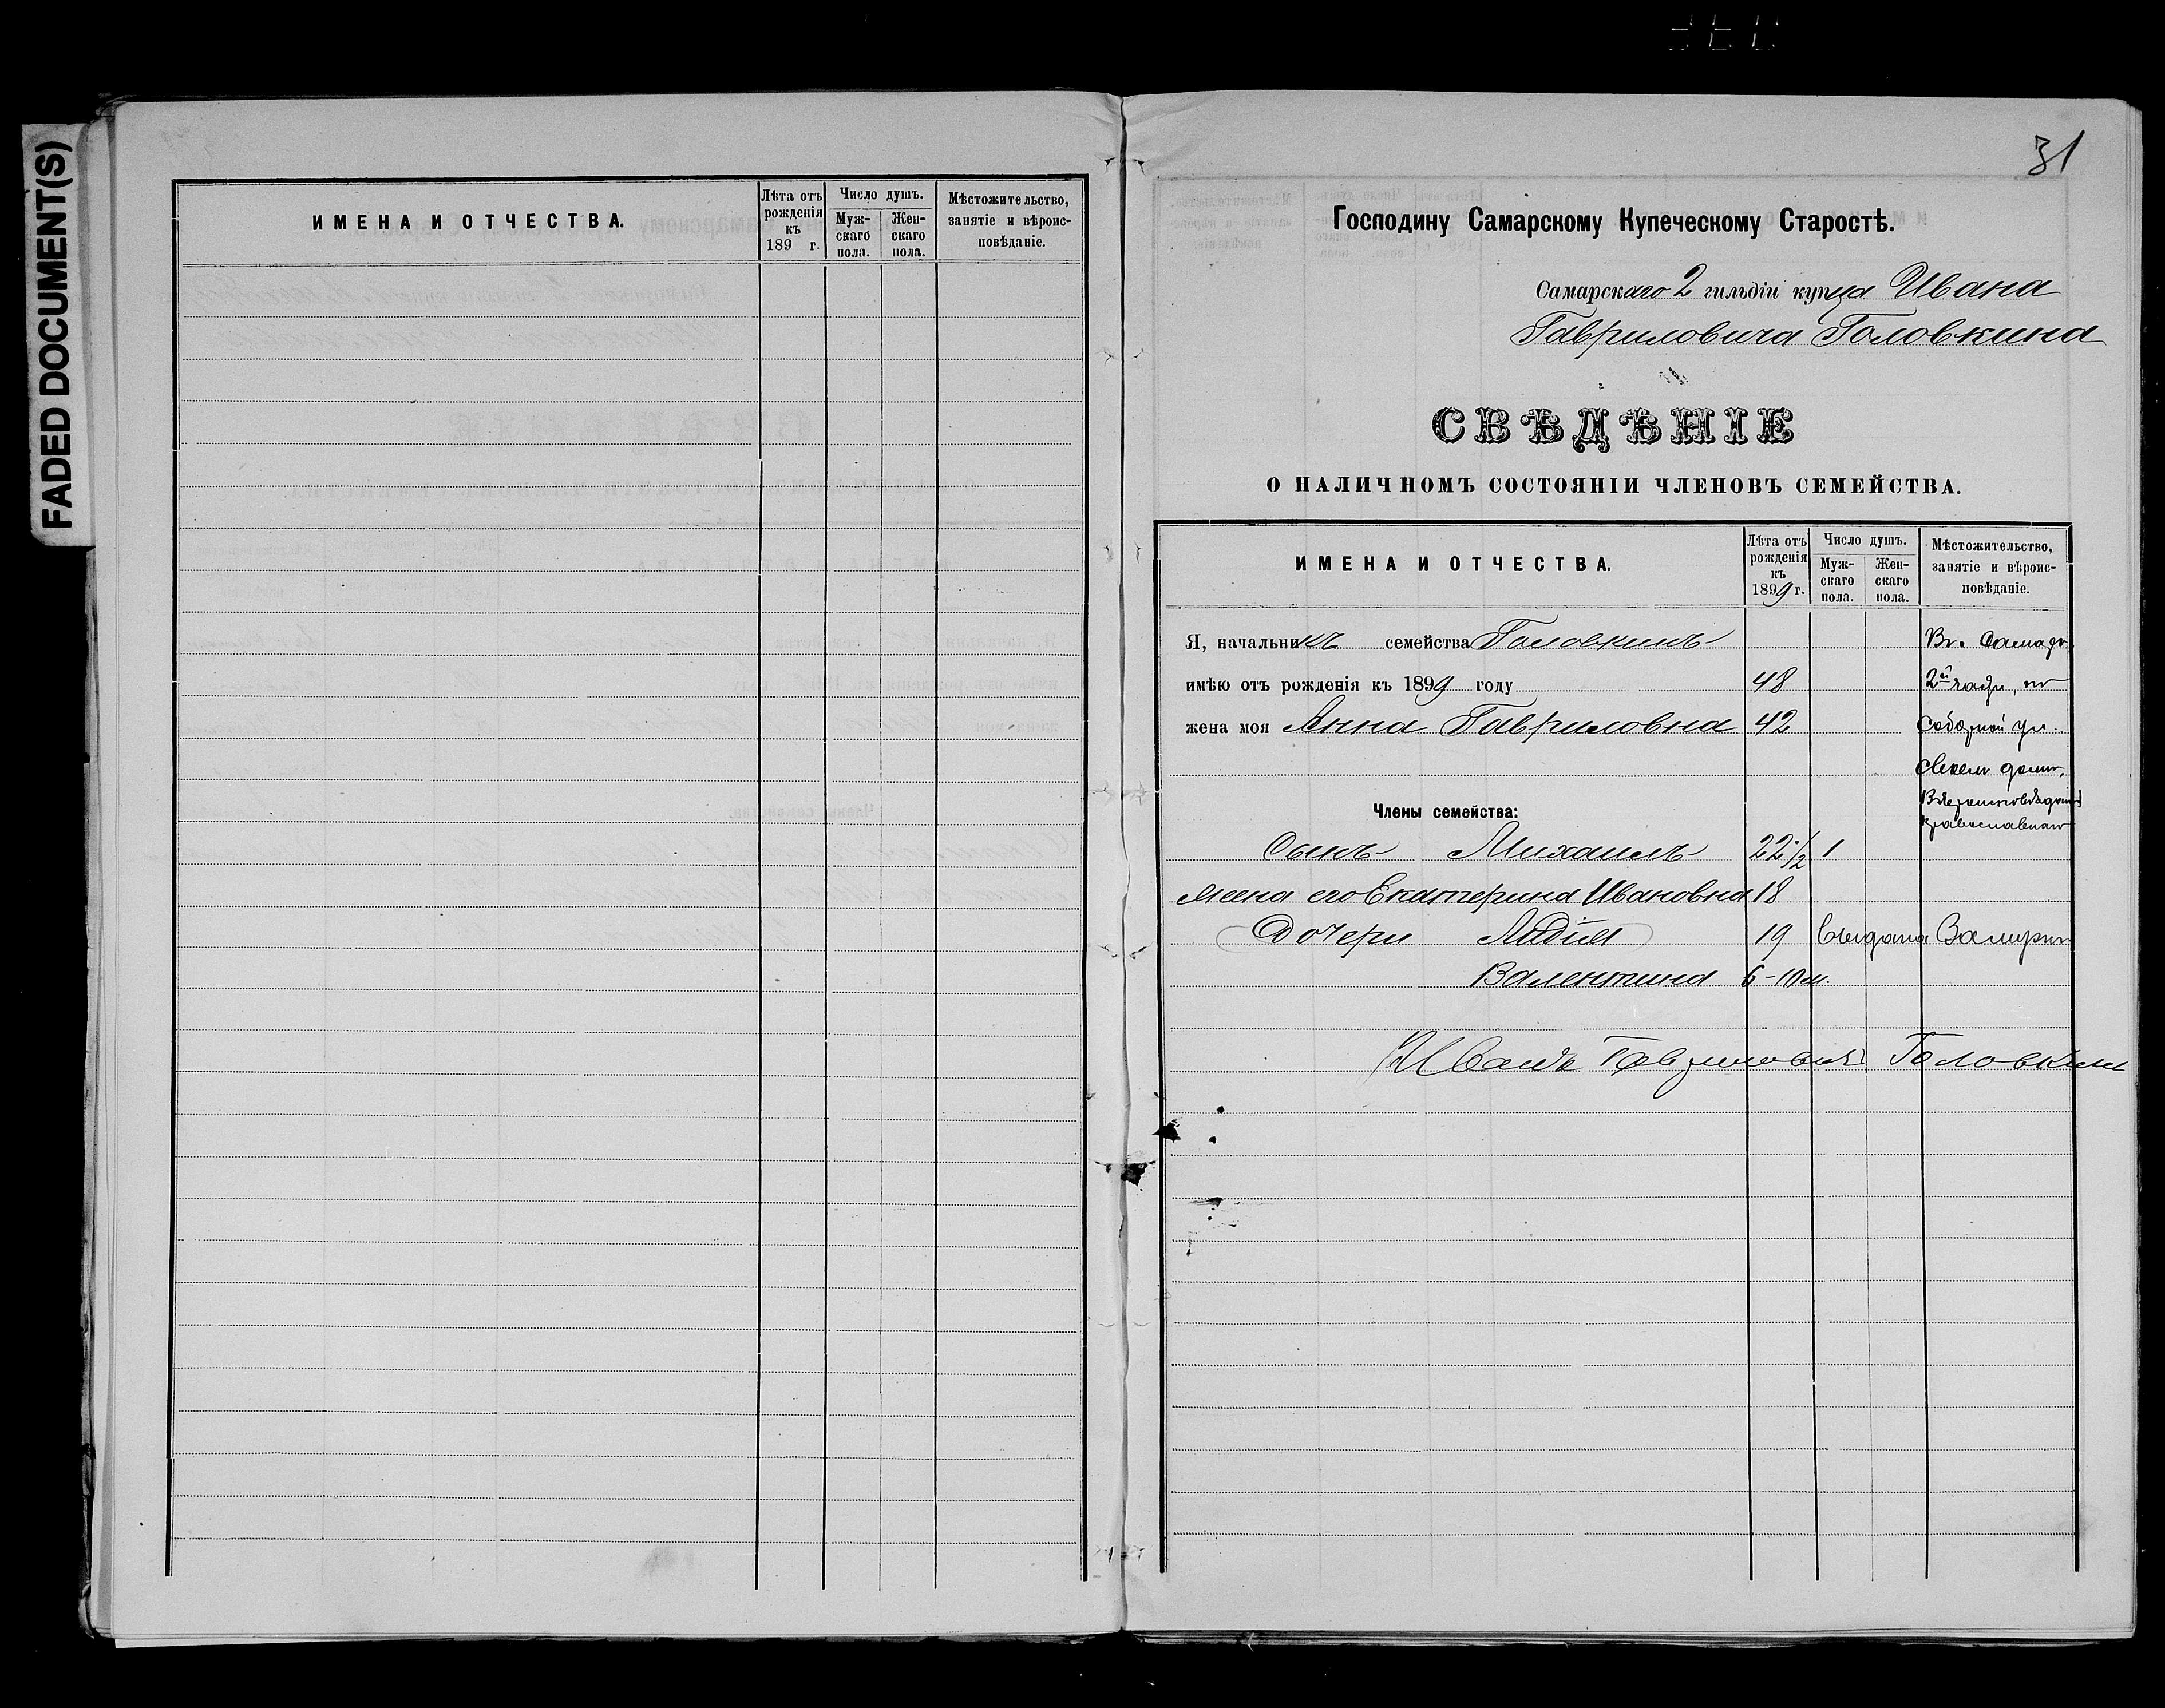 FADED DOCUMENT(S)
ИМЕНА И ОТЧЕСТВА.
Лѣта отъ рожденія къ 189 г.
Число душъ.
Муж-скаго пола.
Жен-скаго пола.
Мѣстожительство, занятіе и вѣроис-повѣданіе.
31
Господину Самарскому Купеческому Старостѣ.
Самарскаго 2 гильдіи купца Ивана
Гавриловича Головкина
СВѢДѢНІЕ
О НАЛИЧНОМЪ СОСТОЯНІИ ЧЛЕНОВЪ СЕМЕЙСТВА.
ИМЕНА И ОТЧЕСТВА.
Лѣта отъ рожденія къ 1899 г.
Число душъ.
Муж-скаго пола.
Жен-скаго пола.
Мѣстожительство, занятіе и вѣроис-повѣданіе.
Я, начальникъ семейства Головкинъ
имѣю отъ рожденія къ 1899 году 48
жена моя Анна Гавриловна 42
Въ Самарѣ
2й части, по
Соборной ул.
своемъ домѣ,
Вѣроисповѣданія
православнаго
Члены семейства:
Сынъ Михаилъ 22 1/2 1
жена его Екатерина Ивановна 18
Дочери Лидія 19 выдана Замужъ
Валентина 6-10 м.
Иванъ Гавриловичъ Головкинъ